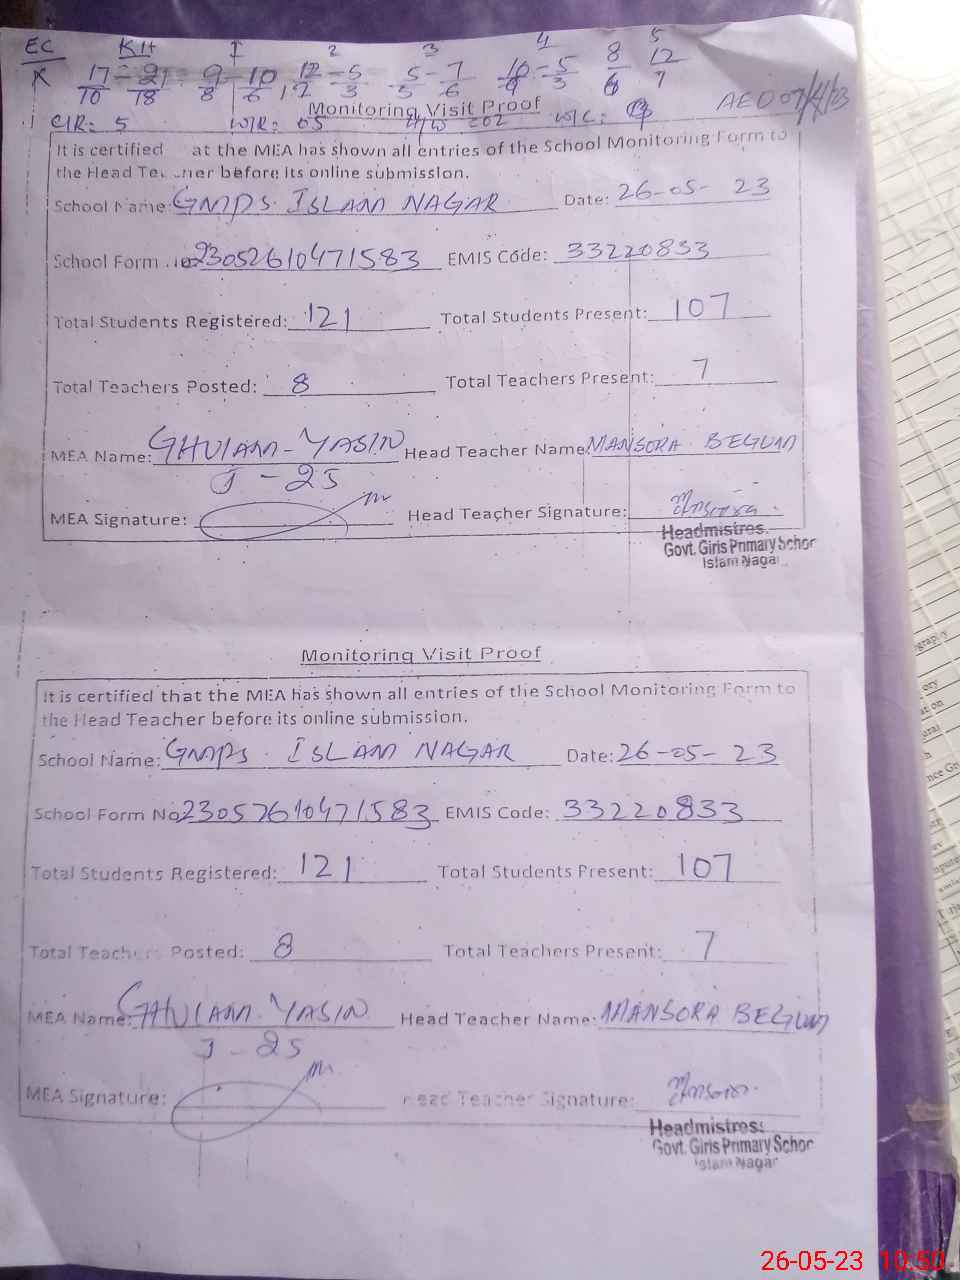 EC KH I 2 3 4 5
K 17/10 - 21/18 9/8 - 10/6, 12/12 - 5/3 5/5 - 7/6 10/9 - 5/3 8/6 12/7
Monitoring Visit Proof AEO 07/4/23
C/R: 5 W/R: 05 202 W/C:
It is certified at the MEA has shown all entries of the School Monitoring Form to
the Head Teacher before its online submission.
School Name: GMPS. ISLAM NAGAR Date: 26-05-23
School Form No 23052610471583 EMIS Code: 33220833
Total Students Registered: 121 Total Students Present: 107
Total Teachers Posted: 8 Total Teachers Present: 7
MEA Name: GHULAM-YASIN Head Teacher Name: MANSORA BEGUM
J-25
MEA Signature: Head Teacher Signature:
Headmistres.
Govt. Girls Primary Schor
Islam Nagar
Monitoring Visit Proof
It is certified that the MEA has shown all entries of the School Monitoring Form to
the Head Teacher before its online submission.
School Name: GMPS. ISLAM NAGAR Date: 26-05-23
School Form No 23052610471583 EMIS Code: 33220833
Total Students Registered: 121 Total Students Present: 107
Total Teachers Posted: 8 Total Teachers Present: 7
MEA Name: GHULAM-YASIN Head Teacher Name: MANSORA BEGUM
J-25
MEA Signature: Head Teacher Signature:
Headmistres:
Govt. Girls Primary Schor
Islam Nagar
26-05-23 10:50